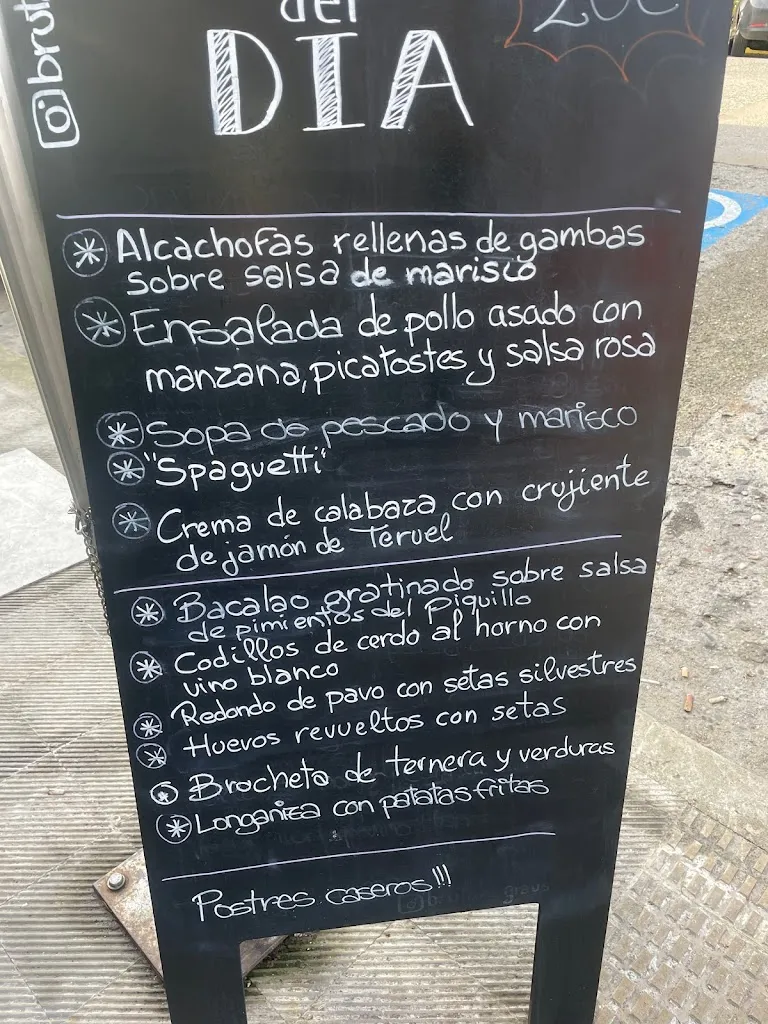 del
20€
DIA
@brut
* Alcachofas rellenas de gambas
sobre salsa de marisco
* Ensalada de pollo asado con
manzana, picatostes y salsa rosa
* Sopa de pescado y marisco
* "Spaguetti"
* Crema de calabaza con crujiente
de jamón de Teruel
* Bacalao gratinado sobre salsa
de pimientos del Piquillo
* Codillos de cerdo al horno con
vino blanco
* Redondo de pavo con setas silvestres
* Huevos revueltos con setas
* Brocheta de ternera y verduras
* Longaniza con patatas fritas
Postres caseros!!!
graus